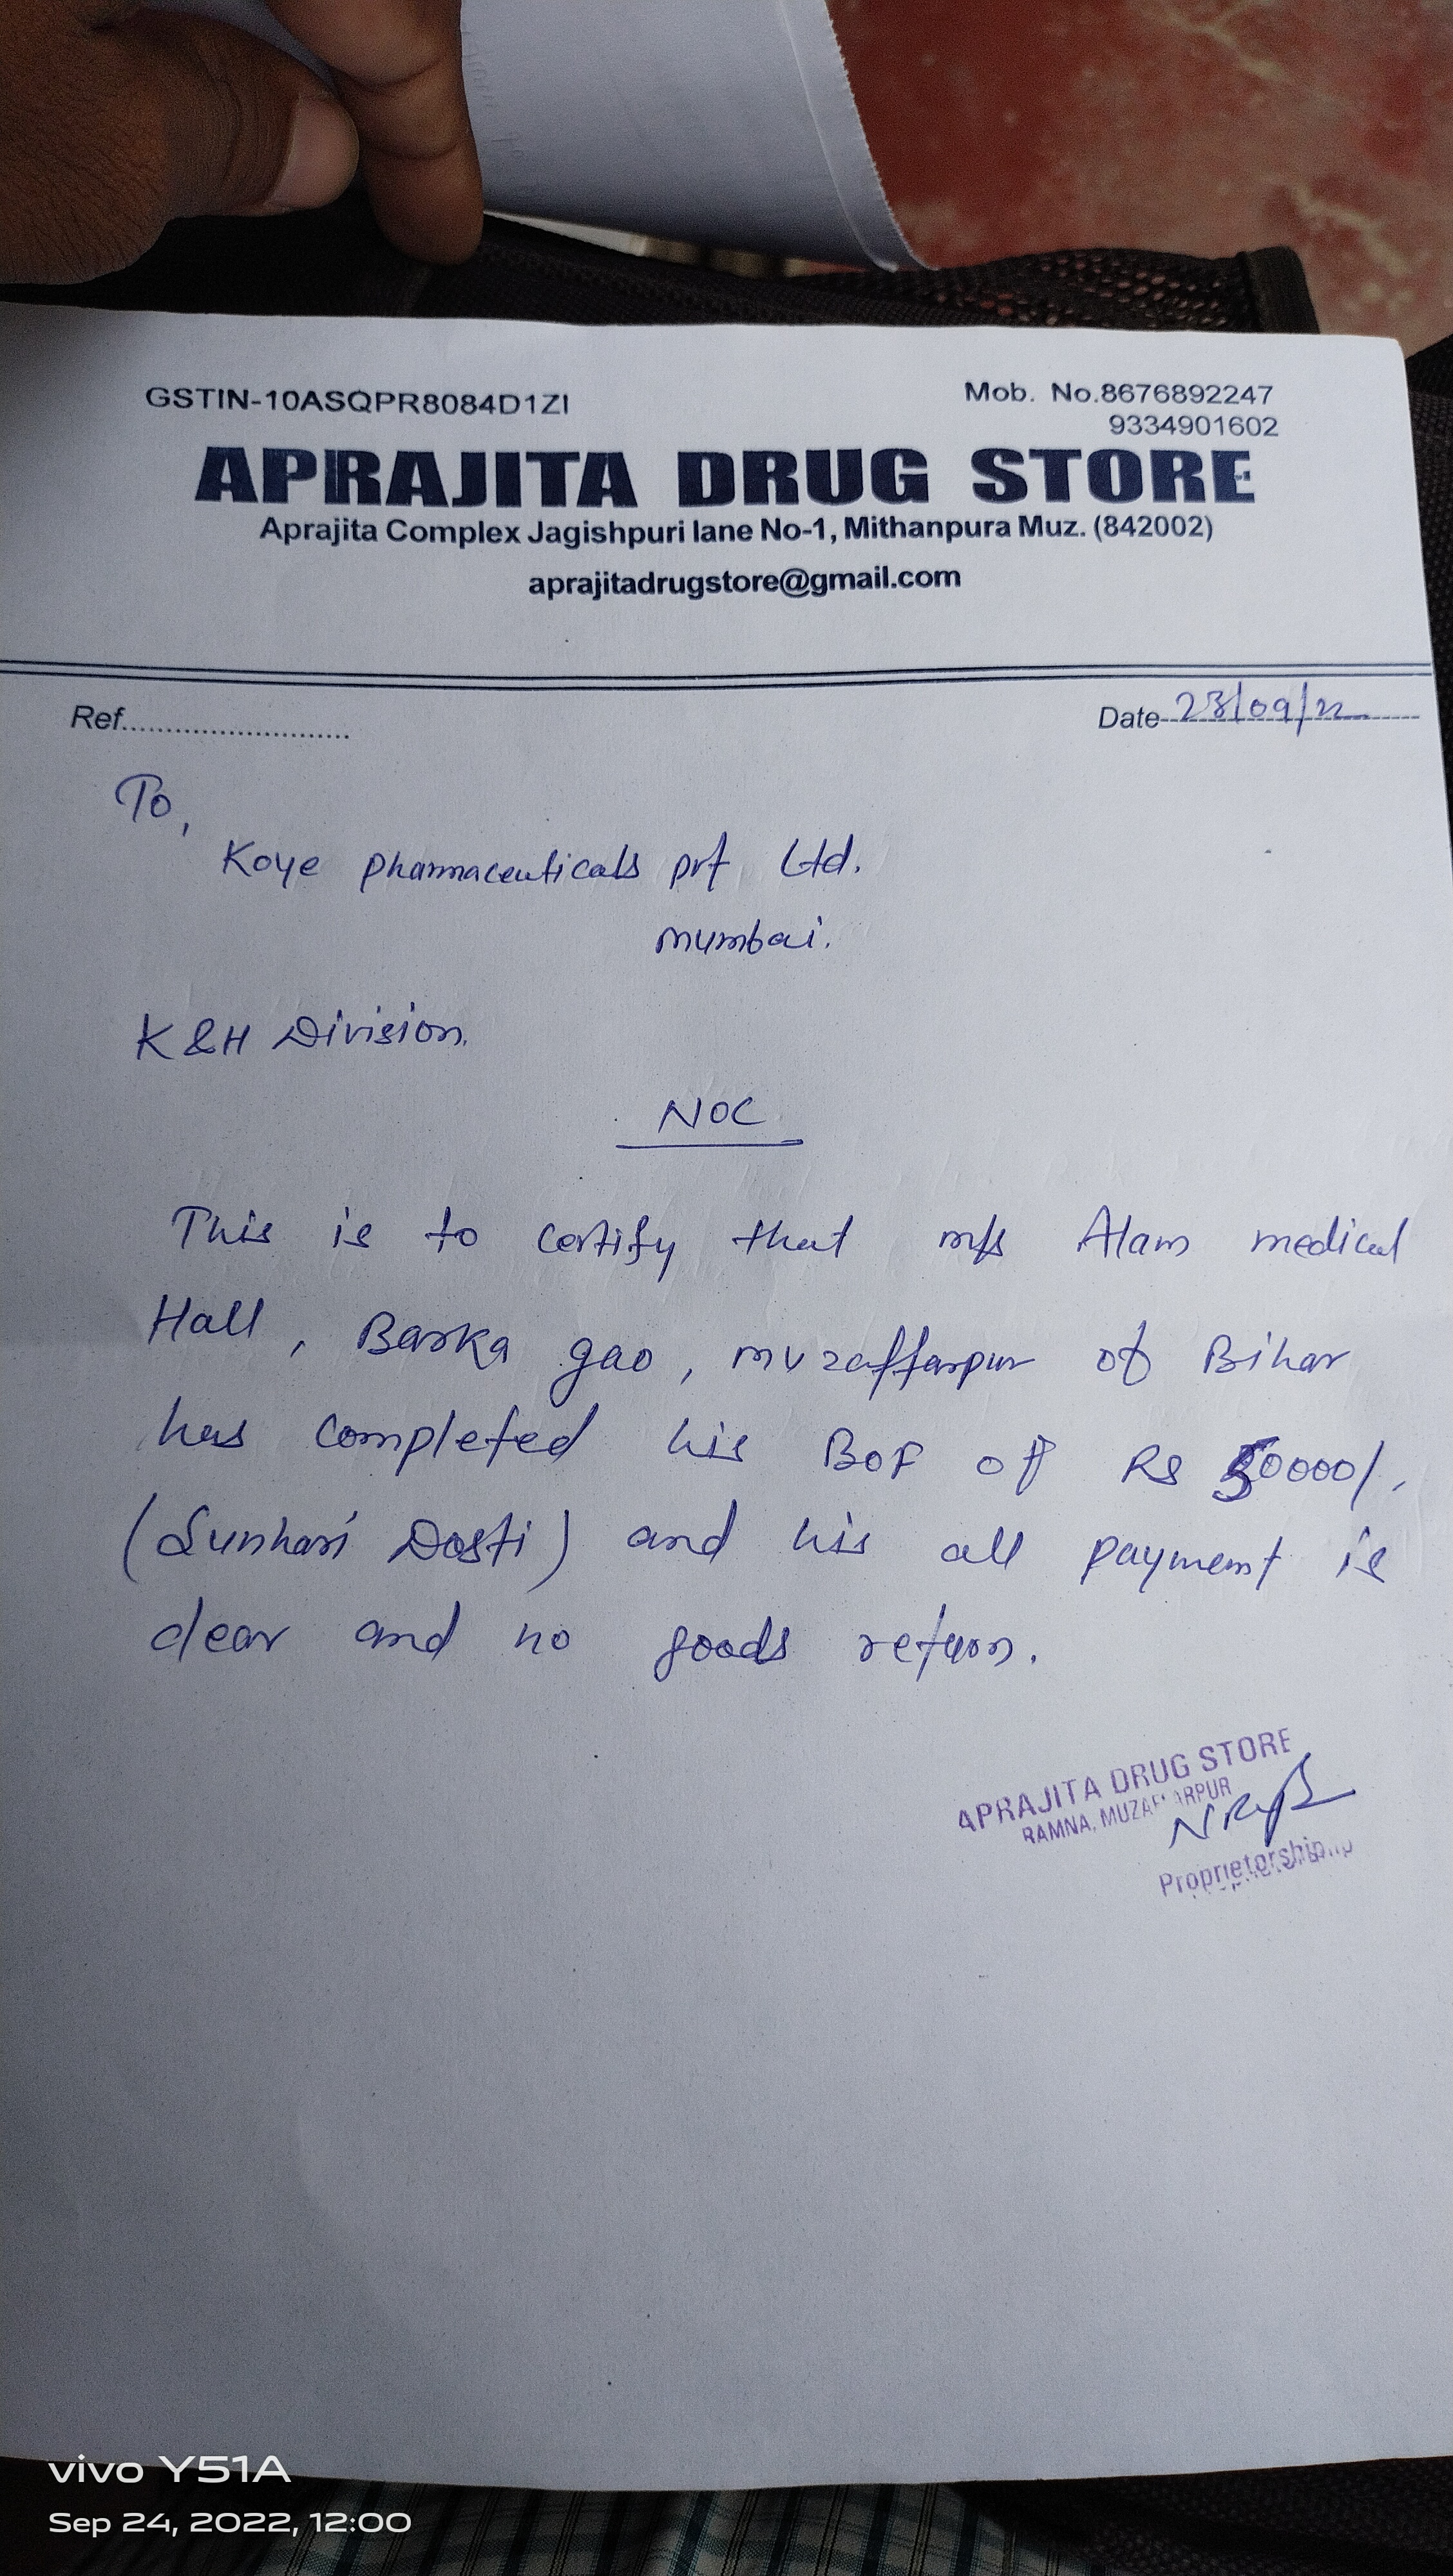 GSTIN-10ASQPR8084D1ZI
Mob. No.8676892247
9334901602
APRAJITA DRUG STORE
Aprajita Complex Jagishpuri lane No-1, Mithanpura Muz. (842002)
aprajitadrugstore@gmail.com
Ref..........................
Date 23/09/22
To,
Koye pharmaceuticals pvt Ltd.
mumbai.
K&H Division.
NOC
This is to certify that m/s Alam medical
Hall, Barka gao, muzaffarpur of Bihar
has completed his BOF of Rs 50000/.
(Sunhari Dosti) and his all payment is
clear and no goods return.
APRAJITA DRUG STORE
RAMNA, MUZAFFARPUR
Proprietorship
vivo Y51A
Sep 24, 2022, 12:00